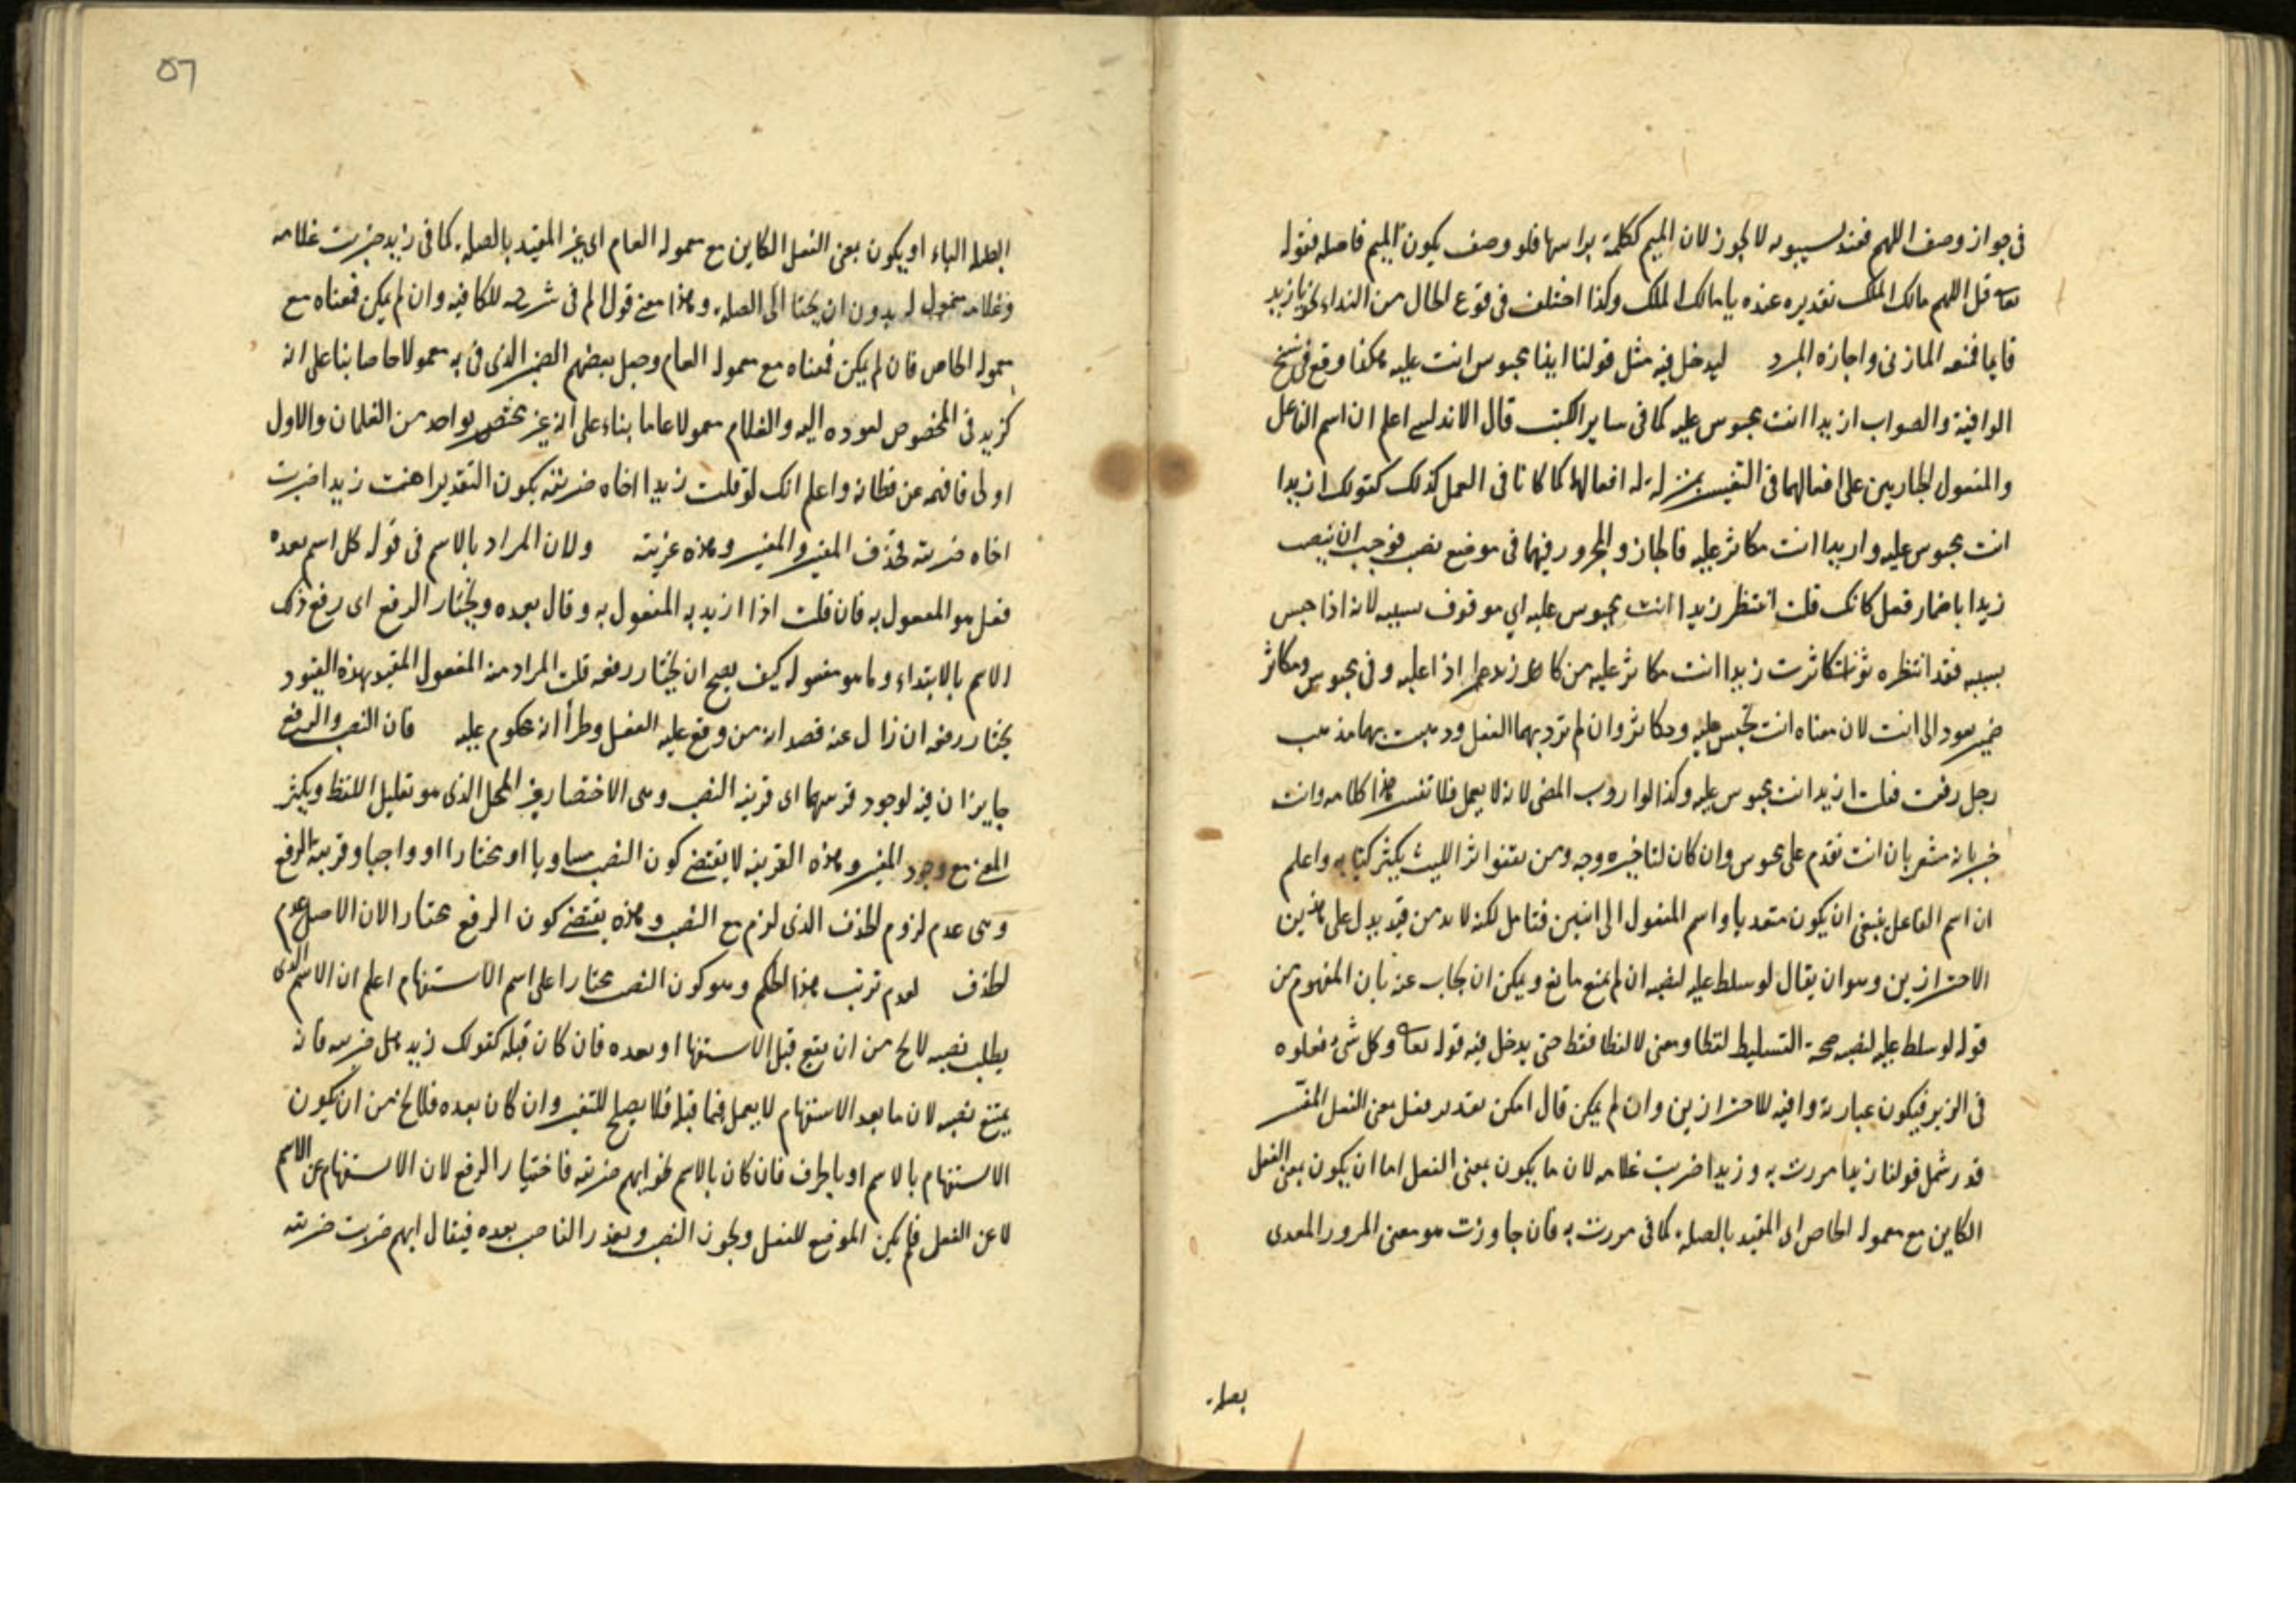 في جواز وصف اللهم فعند سيبويه لا يجوز لان الميم ككلمة براسها فلو وصف يكون الميم فاصله فقوله
تعالى قل اللهم مالك الملك تقديره عنده يا مالك الملك وكذا اختلف في وقوع الحال من النداء نحو يا زيد
قايما فمنعه المازني واجازه المبرد ليدخل فيه مثل قولنا ايضا محبوس انت عليه هكذا وقع في نسخ
الوافية والصواب ازيدا انت محبوس عليه كما في ساير الكتب قال الاندلسي اعلم ان اسم الفاعل
والمفعول الجاريين على افعالهما في التفسير بمنزلة افعالهما كما كانا في العمل كذلك كقولك ازيدا
انت محبوس عليه وازيدا انت مكاثر عليه فالجار والمجرور فيهما في موضع نصب فوجب ان ينصب
زيدا باضمار فعل كانك قلت انتظر زيدا انت محبوس عليه اي موقوف بسببه لانه اذا حبس
بسببه فقد انتظره كاثرت زيدا انت مكاثر عليه من اذا عليه وفي محبوس ومكاثر
ضمير يعود الى انت لان معناه انت تحبس عليه ومكاثر وان لم ترد بهما الفعل وذهبت بهما مذهب
رجل رفعت فقلت ازيد انت محبوس عليه وكذا لو اردت المضي لانه لا يعمل فلا تفسر هذا كلامه وانت
خبير بانه مشعر بان انت تقدم على محبوس وان كان لتاخيره وجه ومن يقتفو اثر الليث يكثر واعلم
ان اسم الفاعل ينبغي ان يكون متعديا واسم المفعول الى اثنين فتامل لكنه لا بد من قيد يدل على هذين
الاحترازين وهو ان يقال لو سلط عليه لنصبه ان لم يمنع مانع ويمكن ان يجاب عنه بان المفهوم من
قوله لو سلط عليه لنصبه صحة التسليط لفظا ومعنى لا لفظا فقط حتى يدخل فيه قوله تعالى وكل شئ فعلوه
في الزبر فيكون عبارته وافيه للاحترازين وان لم يكن قال امكن تقدير فعل معنى الفعل المفسر
قد شمل قولنا زيدا مررت به وزيدا ضربت غلامه لان ما يكون بمعنى الفعل اما ان يكون بمعنى الفعل
الكاين مع معموله الخاص اي المقيد بالصلة كما في مررت به فان جاوزت هو معنى المرور المعدى
بصلة
٥٦
الباء او يكون بمعنى الفعل الكاين مع معموله العام اي غير المقيد بالصلة كما في زيد ضربت غلامه
وغلامه معمول له بدون ان يحتاج الى الصلة وهذا معنى قول المص في شرحه للكافيه وان لم يكن فمعناه مع
معموله الخاص فان لم يكن فمعناه مع معموله العام وجعل بعضهم الضمير الذي في به معمولا خاصا بنا على انه
كزيد في المخصوص لعوده اليه والغلام معمولا عاما بناء على انه غير مختص بواحد من الغلمان والاول
اولى فافهمه عن فطانة واعلم انك لو قلت زيدا اخاه ضربته يكون التقدير اهنت زيدا ضربت
اخاه ضربته فحذف المفسر والمفسر وهذه غريبة ولان المراد بالاسم في قوله كل اسم بعده
فعل هو المفعول به فان قلت اذا اريد به المفعول به وقال بعده ويختار الرفع اي رفع ذلك
الاسم بالابتداء وما هو مفعوله كيف يصح ان يختار رفعه قلت المراد منه المفعول المقيد بهذه القيود
يختار رفعه ان زال عنه قصد انه من وقع عليه الفعل وطرأ انه محكوم عليه فان النصب والرفع
جايزان فيه لوجود قرينتهما اي قرينة النصب وهي الاختصار في المحل الذي هو تقليل اللفظ وتكثير
المعنى مع وجود المفسر وهذه القرينة لا يقتضي كون النصب مساويا او مختارا او واجبا وقرينة الرفع
وهي عدم لزوم الحذف الذي لزم مع النصب وهذه يقتضي كون الرفع مختارا لان الاصل عدم
الحذف لعدم ترتب هذا الحكم وهو كون النصب مختارا على اسم الاستفهام اعلم ان الاسم الذي
يطلب نصبه لا يخ من ان يقع قبل الاستفهام او بعده فان كان قبله كقولك زيد هل ضربته فانه
يمتنع نصبه لان ما بعد الاستفهام لا يعمل فيما قبله فلا يصلح للتفسير وان كان بعده فلا يخ من ان يكون
الاستفهام بالاسم او بالحرف فان كان بالاسم نحو ايهم ضربته فاختيار الرفع لان الاستفهام عن الاسم
لا عن الفعل فلم يكن الموضع للفعل ويجوز النصب ويقدر الناصب بعده فيقال ايهم ضربت ضربته